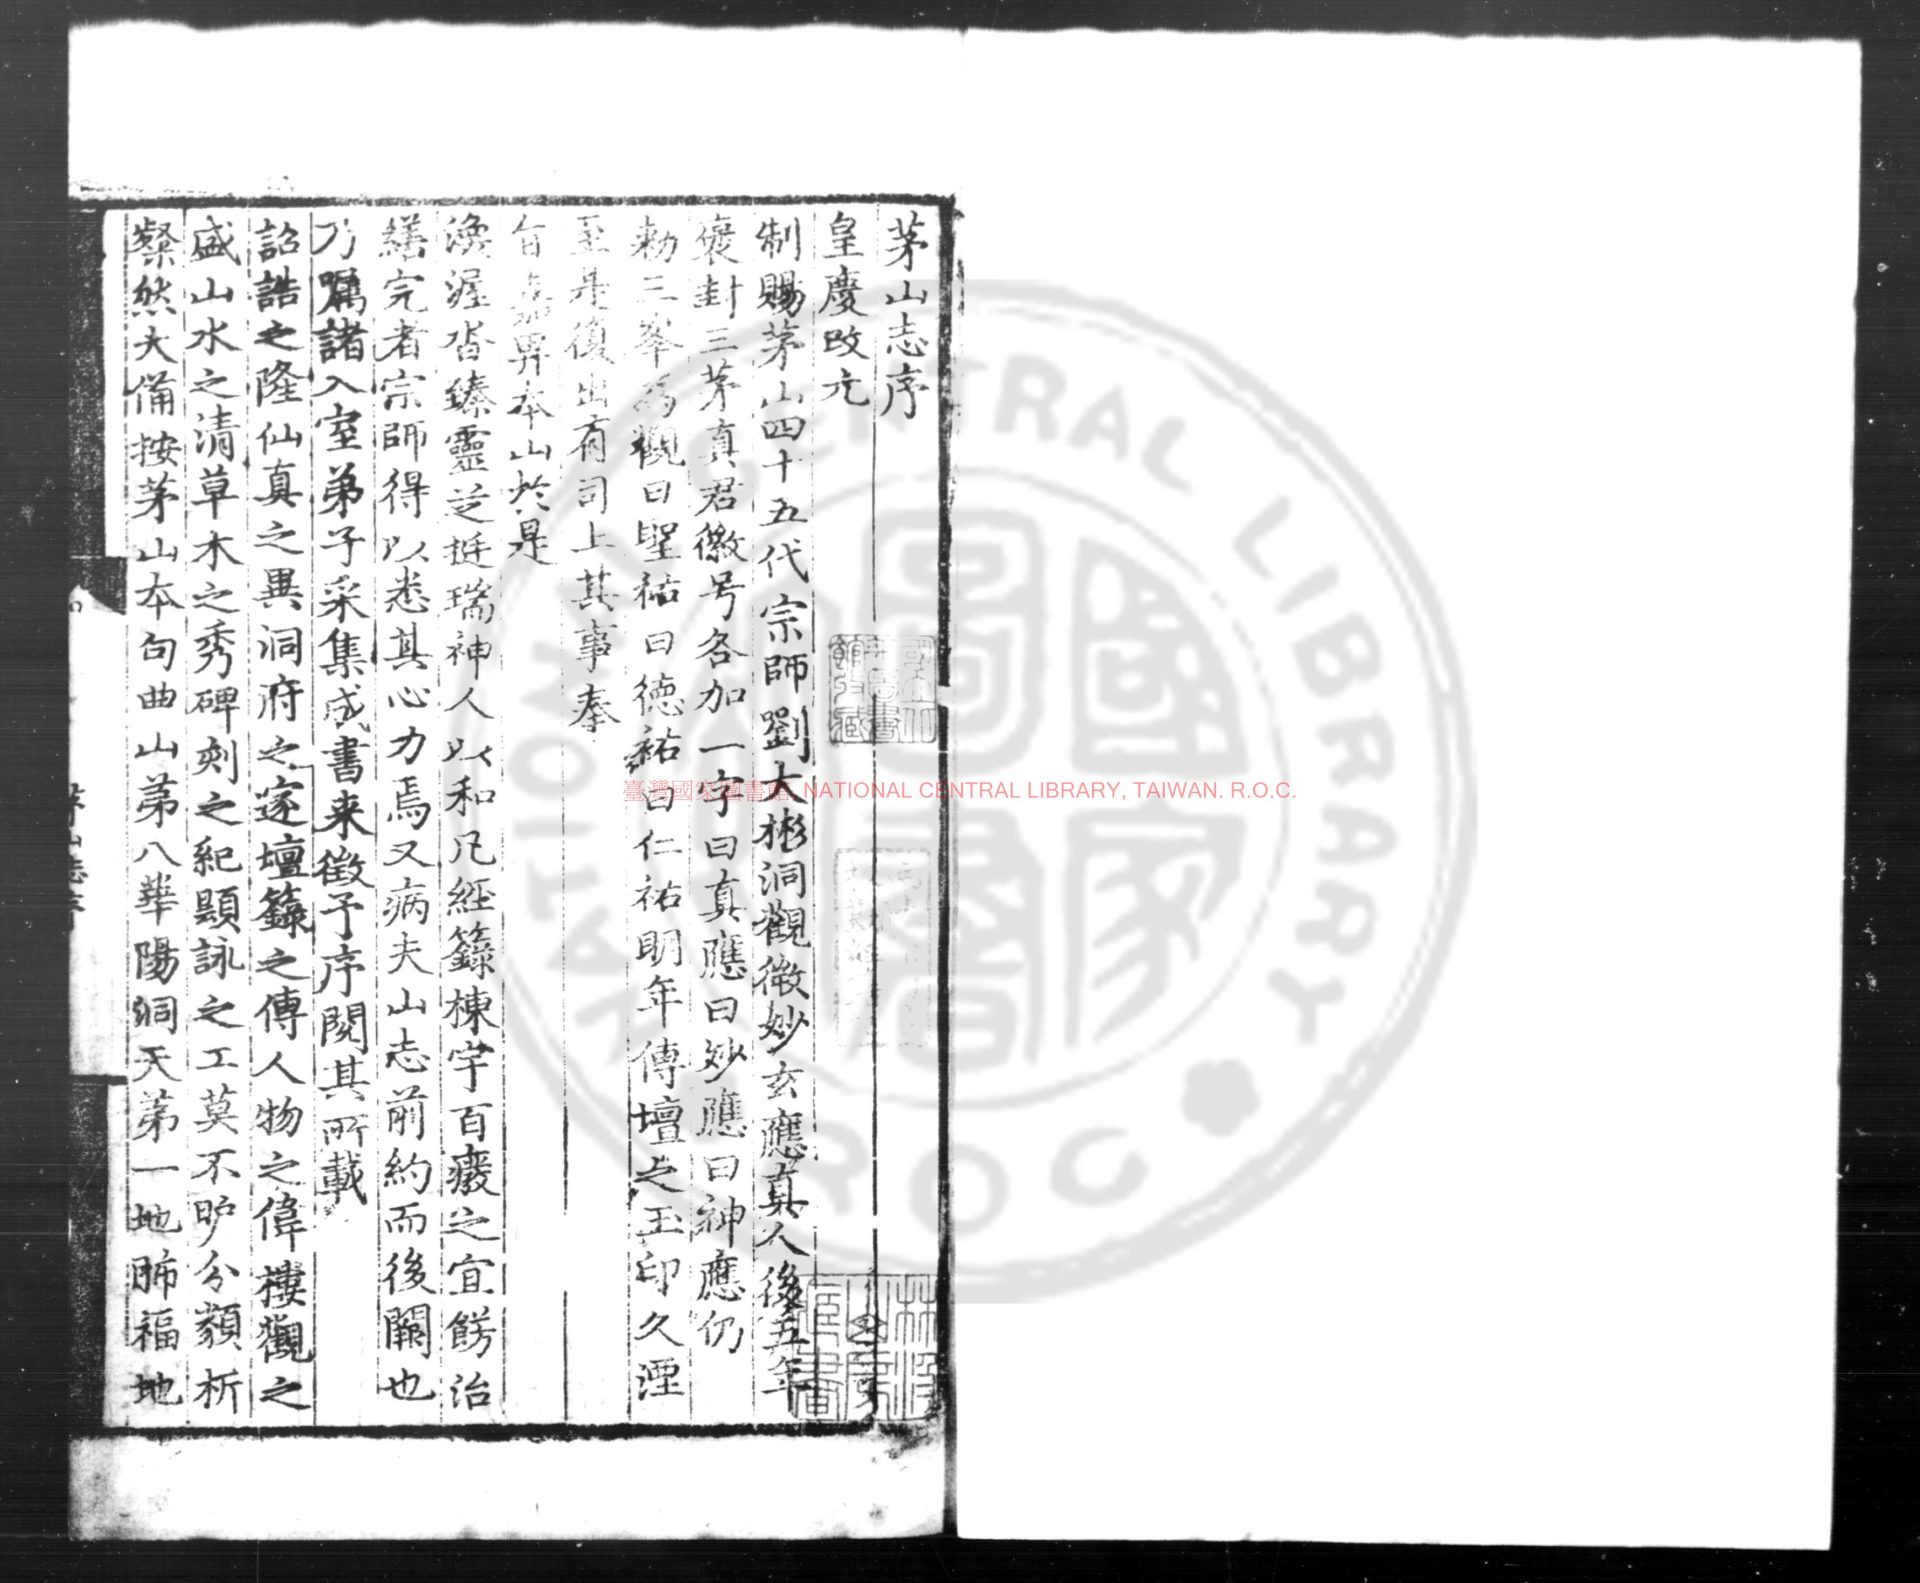 茅山志序
皇慶改元
制賜茅山四十五代宗師劉大彬洞觀微妙玄應真人後五年
褒封三茅真君徽号各加一字曰真應曰妙應曰神應仍
勑三峯為觀曰聖祐曰德祐曰仁祐明年傳壇之玉印久湮
至是復出有司上其事奉
旨嘉畀本山於是
渙渥沓臻靈芝挺瑞神人以和凡經籙棟宇百癈之宜餝治
繕完者宗師得以悉其心力焉又病夫山志前約而後闕也
乃囑諸入室弟子采集成書来徵予序閱其所載
詔誥之隆仙真之異洞府之邃壇籙之傳人物之偉樓觀之
盛山水之清草木之秀碑刻之紀題詠之工莫不昈分類析
粲然大備按茅山本句曲山第八華陽洞天第一地肺福地
茅山志序
臺灣國家圖書館, NATIONAL CENTRAL LIBRARY, TAIWAN. R.O.C.
NATIONAL CENTRAL LIBRARY
R.O.C
國家圖書